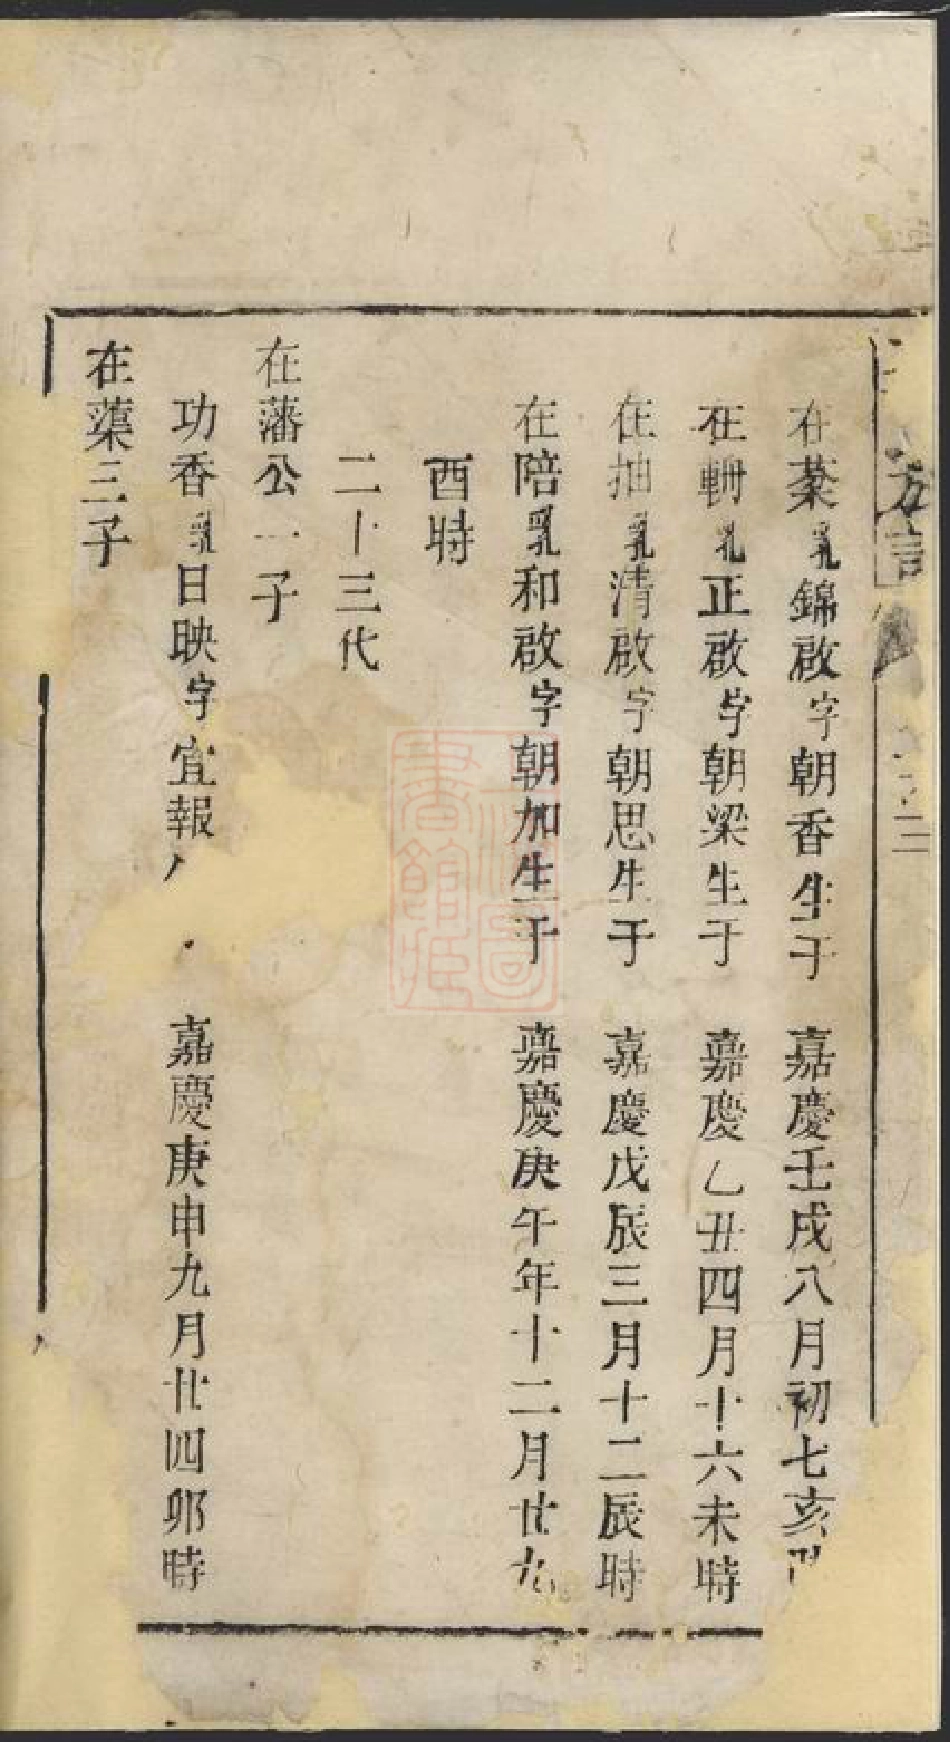 在蓁乳錦啟字朝香生于 嘉慶壬戌八月初七亥時
在輈乳正啟字朝梁生于 嘉慶乙丑四月十六未時
在抽乳清啟字朝思生于 嘉慶戊辰三月十二辰時
在陪乳和啟字朝加生于 嘉慶庚午年十二月廿九
酉時
二十三代
在藩公一子
功香乳日映字宜報 嘉慶庚申九月廿四卯時
在蕖三子